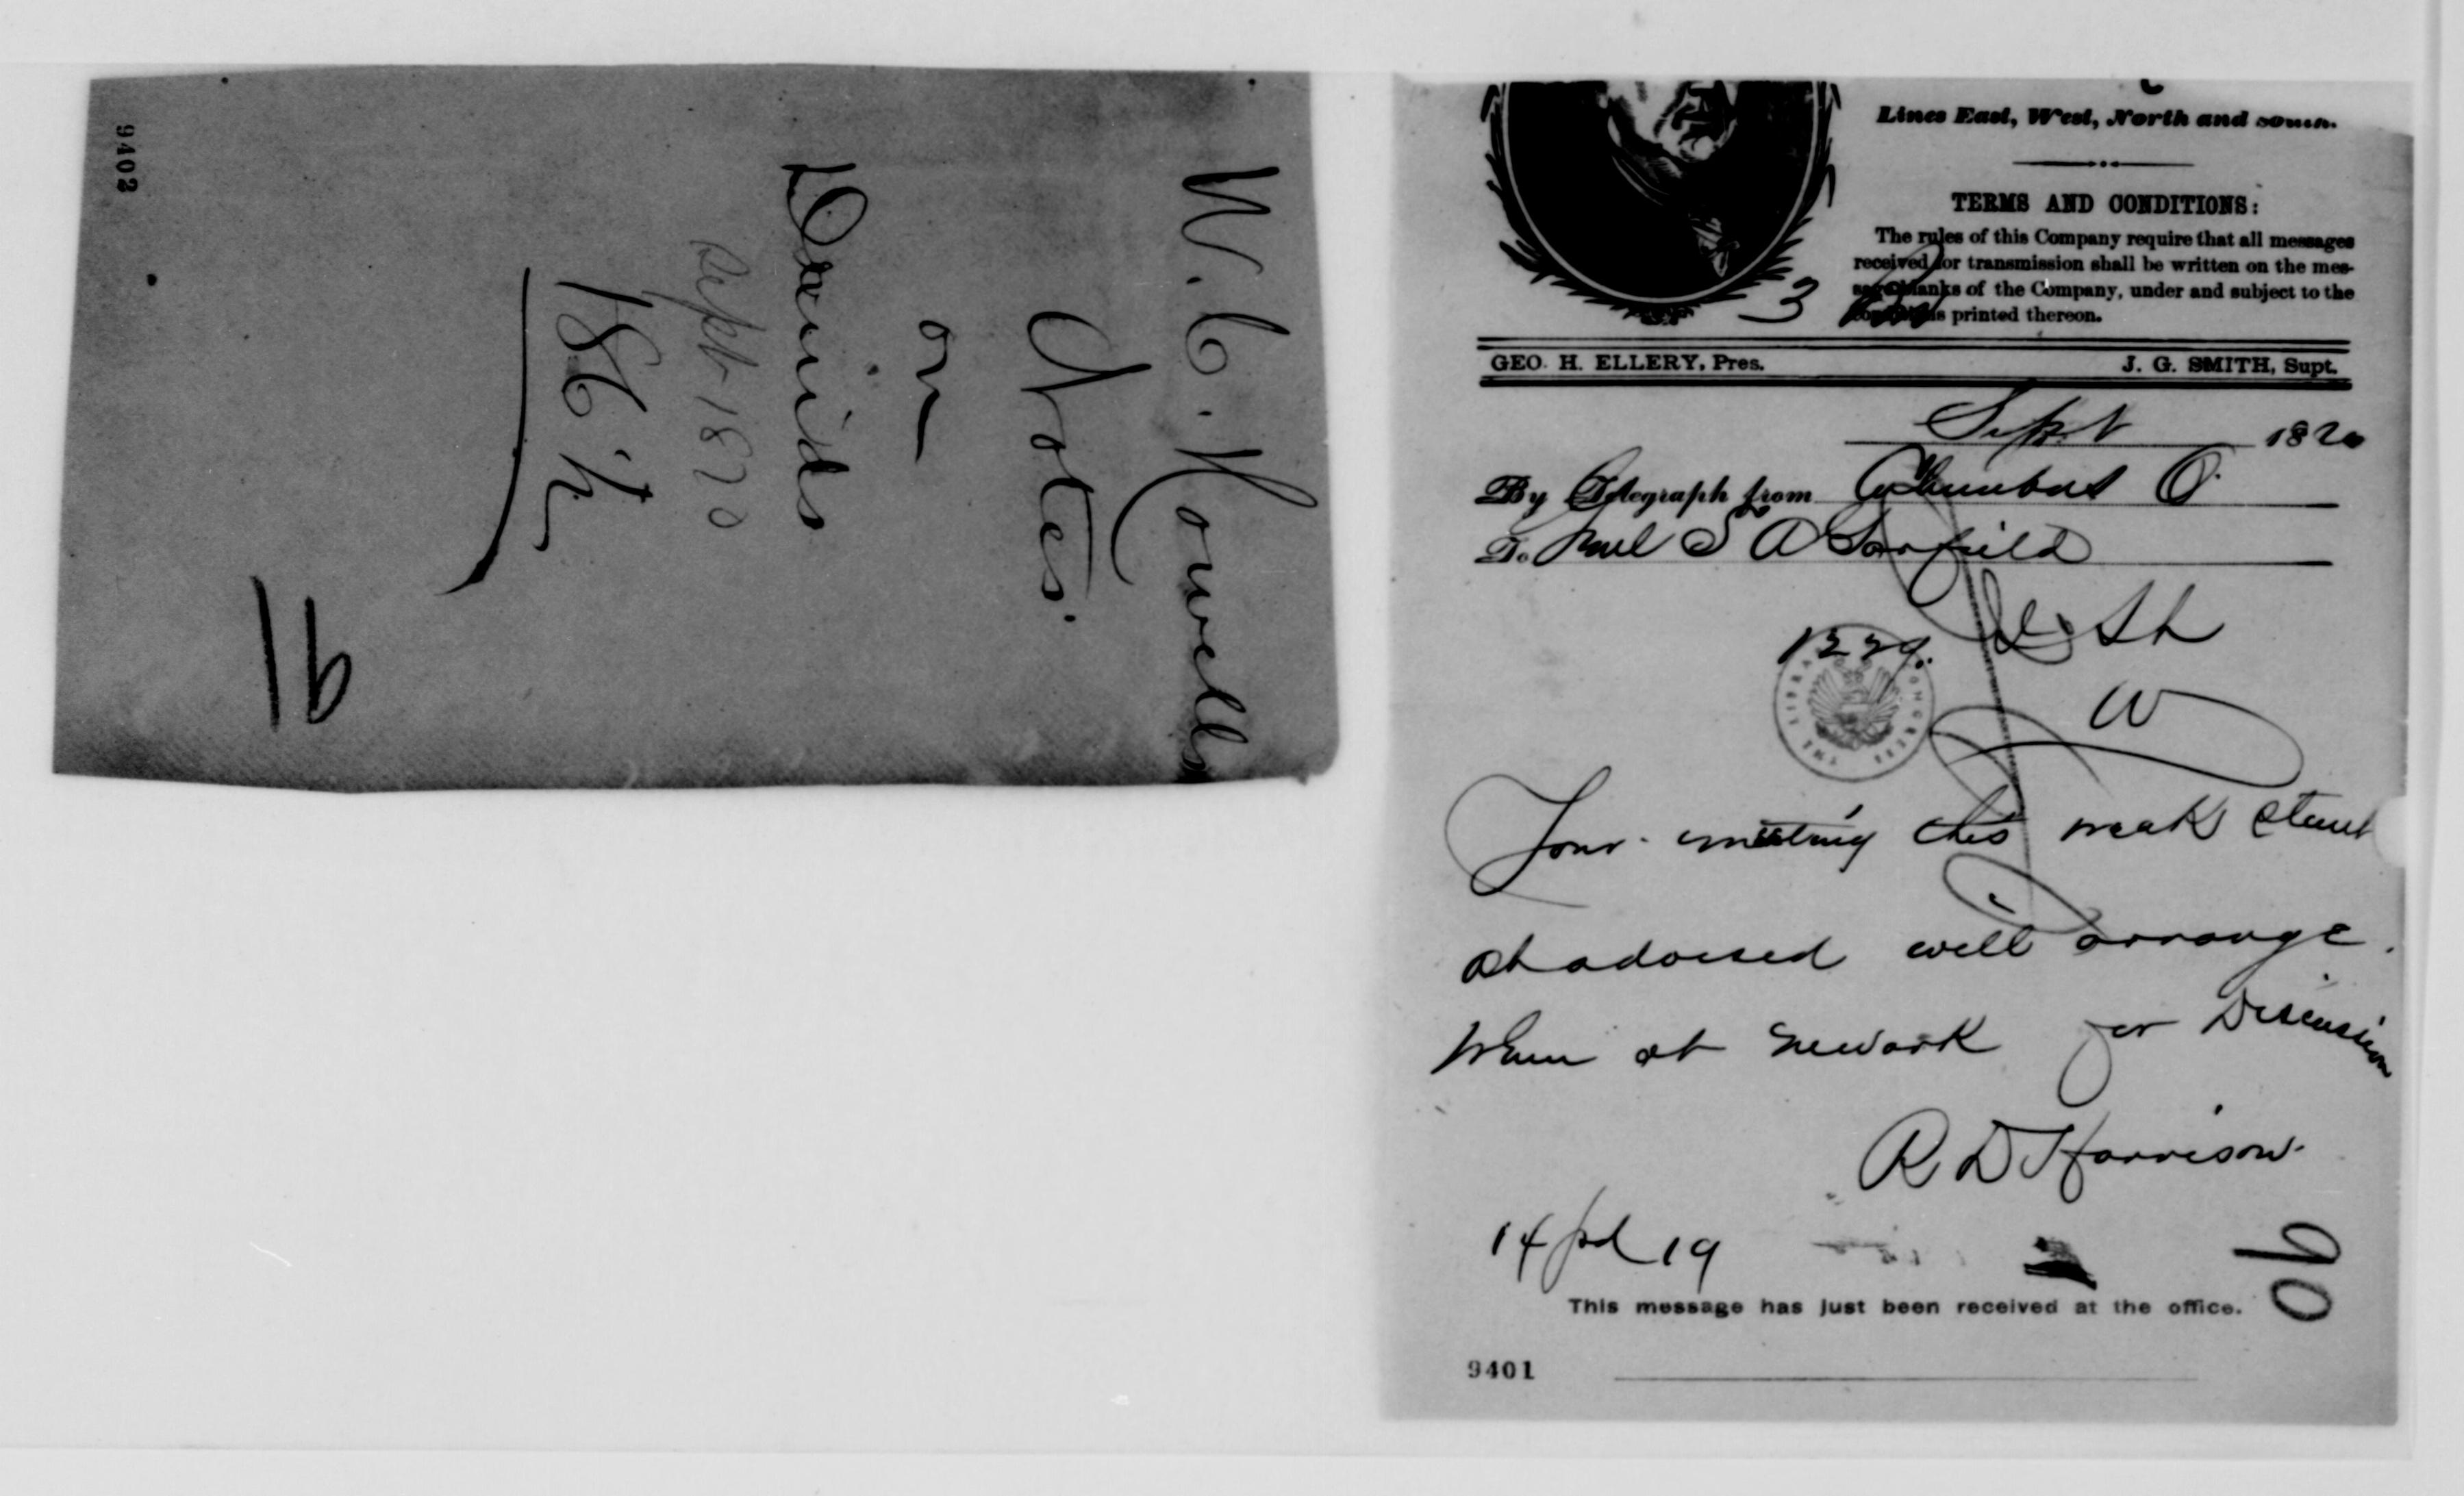 9402
W. C. Howells
Notes.
on
Druids
Sept-1870
186
91
Lines East, West, North and South.
TERMS AND CONDITIONS:
The rules of this Company require that all messages
received for transmission shall be written on the mes-
sage blanks of the Company, under and subject to the
conditions printed thereon.
3
GEO. H. ELLERY, Pres. J. G. SMITH, Supt.
Sept 1870
By Telegraph from Columbus O.
To Genl J A Garfield
W
Your meeting this week
will arrange.
When at Newark for Discussion
R D Harrison
14 pd 19
This message has just been received at the office.
90
9401
THE LIBRARY CONGRESS